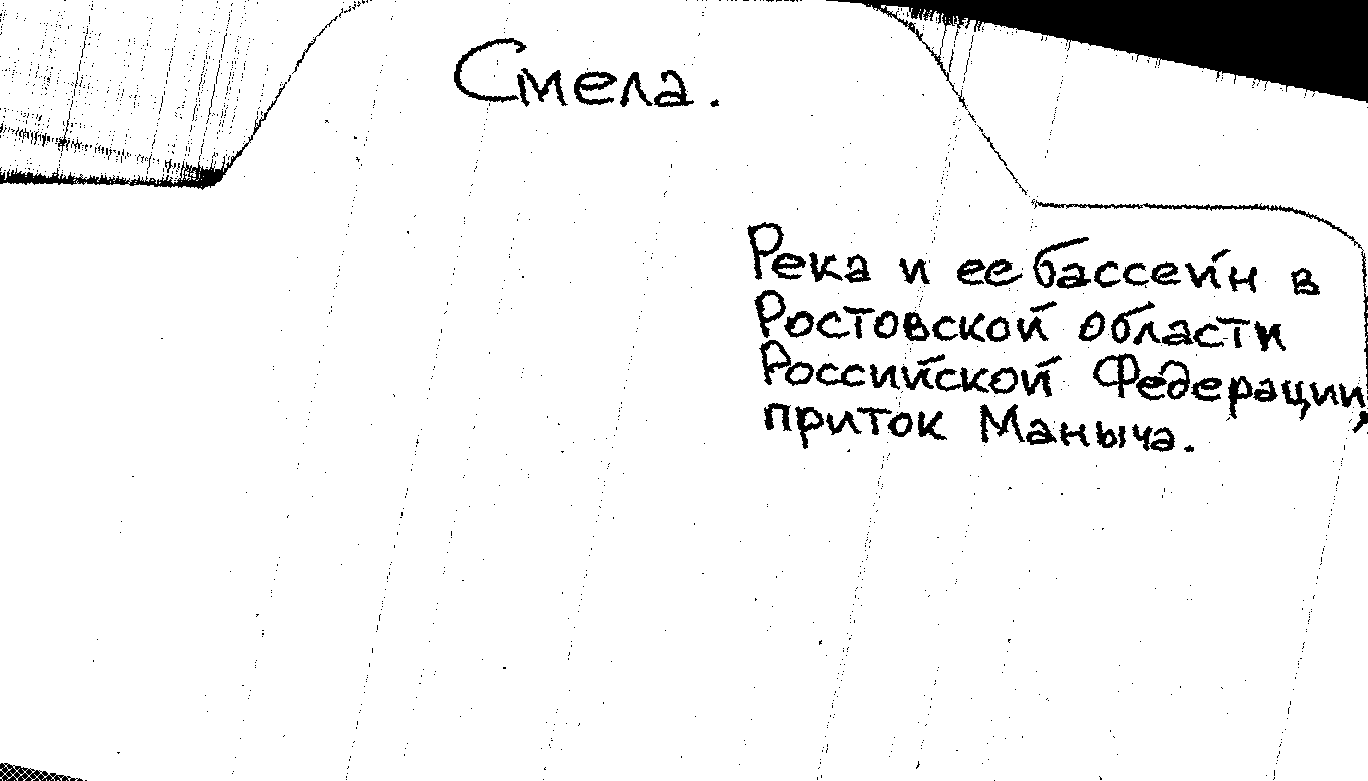 Смела.
Река и ее бассейн в
Ростовской области
Российской Федерации,
приток Маныча.